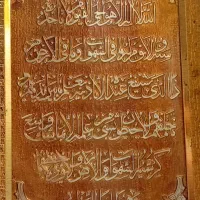 الله لا إله إلا هو الحي القيوم لا تأخذه
سنة ولا نوم له ما في السموات وما في الأرض من
ذا الذي يشفع عنده إلا بإذنه يعلم ما بين أيديهم وما
خلفهم ولا يحيطون بشيء من علمه إلا بما شاء وسع
كرسيه السموات والأرض ولا يؤده